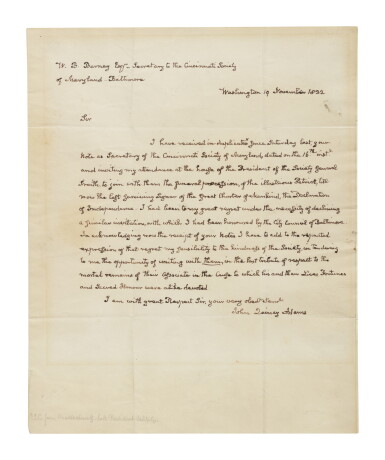 W. B. Barney Esqr. Secretary to the Cincinnati Society
of Maryland Baltimore
Washington 19 November 1832
Sir
I have received in duplicate since Saturday last, your
Note as Secretary of the Cincinnati Society of Maryland, dated on the 16th inst.
and inviting my attendance at the house of the President of the Society General
Smith, to join with them the funeral procession, of the illustrious Patriot, till
now the last surviving Signer of the Great Charter of mankind, the Declaration
of Independence. I had been to my great regret under the necessity of declining
a similar invitation, with which I had been honoured by the City Council of Baltimore
In acknowledging now the receipt of your Note, I have to add to the repeated
expression of that regret my sensibility to the kindness of the Society in tendering
to me the opportunity of uniting with them, in the last tribute of respect to the
mortal remains of their associate in the cause to which his and their Lives, Fortunes
and Sacred Honour were devoted
I am with great Respect Sir, your very obedt. Servt.
John Quincy Adams